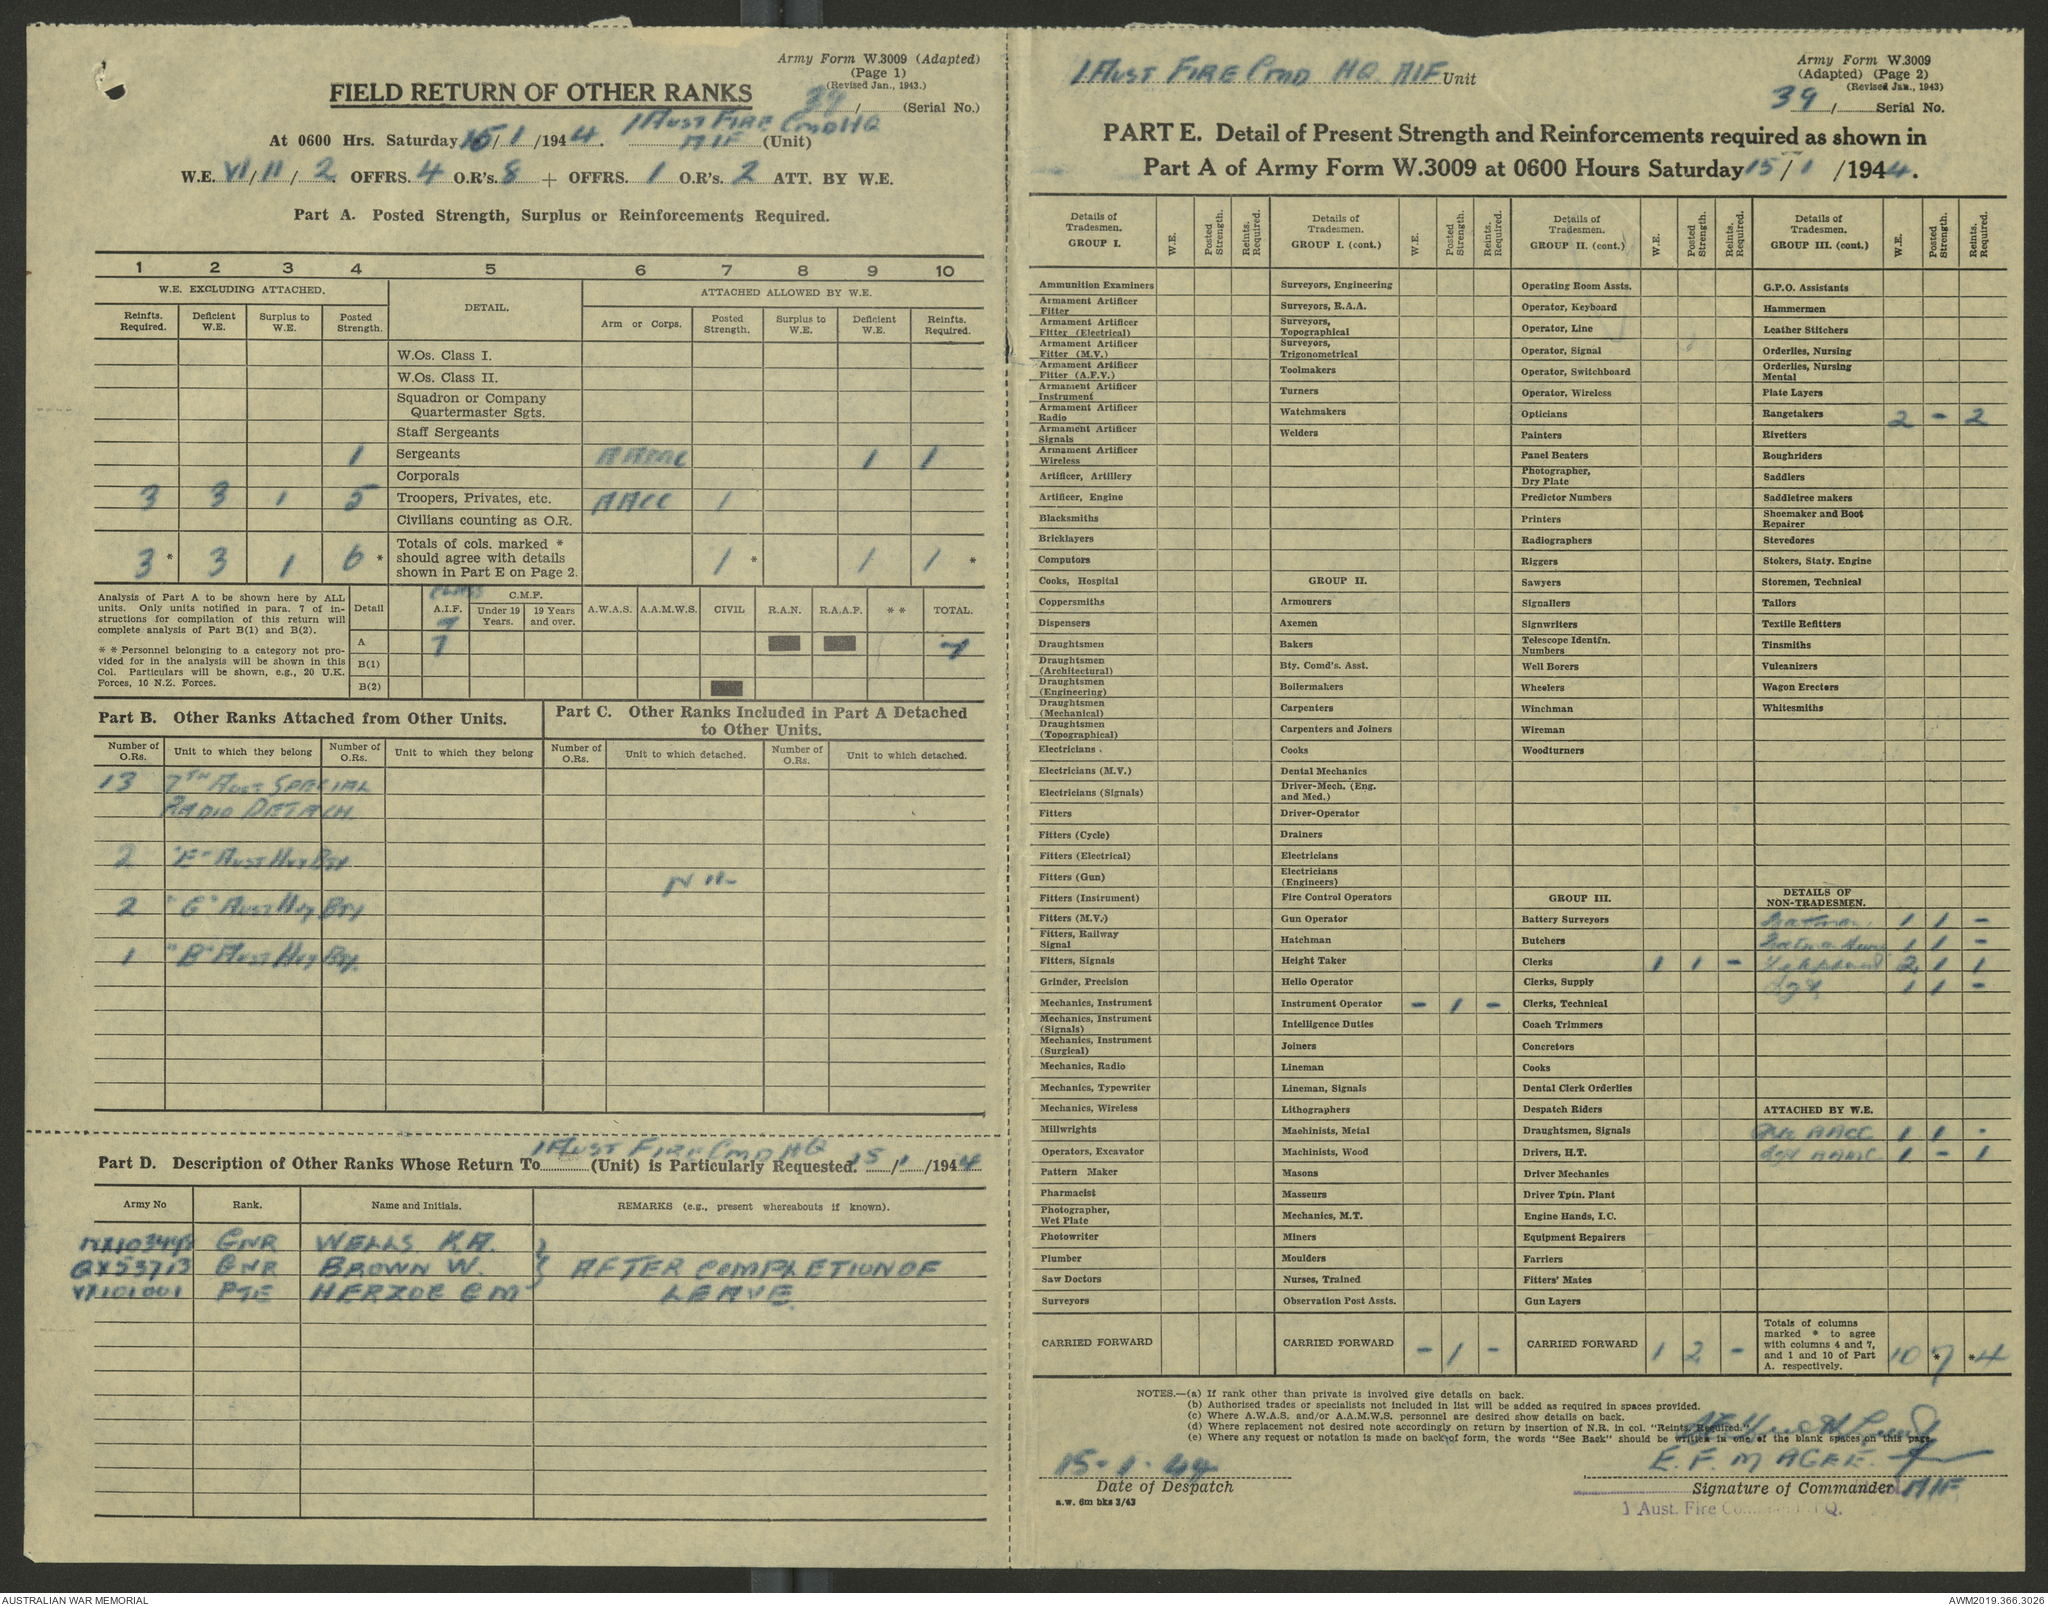 Army Form W.3009 (Adapted)
(Page 1)
(Revised Jan., 1943.)
FIELD RETURN OF OTHER RANKS
39 / (Serial No.)
At 0600 Hrs. Saturday 15/1/1944. 1 AUST FIRE CMD HQ AIF (Unit)
W.E. VI/11/2 OFFRS. 4 O.R's. 8 + OFFRS. 1 O.R's. 2 ATT. BY W.E.
Part A. Posted Strength, Surplus or Reinforcements Required.
1 2 3 4 5 6 7 8 9 10
W.E. EXCLUDING ATTACHED. DETAIL. ATTACHED ALLOWED BY W.E.
Reinfts. Required. Deficient W.E. Surplus to W.E. Posted Strength. Arm or Corps. Posted Strength. Surplus to W.E. Deficient W.E. Reinfts. Required.
W.Os. Class I.
W.Os. Class II.
Squadron or Company
Quartermaster Sgts.
Staff Sergeants
1 Sergeants AAMC 1 1
Corporals
3 3 1 5 Troopers, Privates, etc. AACC 1
Civilians counting as O.R.
3* 3 1 6* Totals of cols. marked * should agree with details shown in Part E on Page 2. 1* 1 1*
Analysis of Part A to be shown here by ALL
units. Only units notified in para. 7 of in-
structions for compilation of this return will
complete analysis of Part B(1) and B(2).
* * Personnel belonging to a category not pro-
vided for in the analysis will be shown in this
Col. Particulars will be shown, e.g., 20 U.K.
Forces, 10 N.Z. Forces.
Detail A.I.F. C.M.F. Under 19 Years. 19 Years and over. A.W.A.S. A.A.M.W.S. CIVIL R.A.N. R.A.A.F. * * TOTAL.
7
A 7 7
B(1)
B(2)
Part B. Other Ranks Attached from Other Units.
Part C. Other Ranks Included in Part A Detached
to Other Units.
Number of O.Rs. Unit to which they belong Number of O.Rs. Unit to which they belong Number of O.Rs. Unit to which detached. Number of O.Rs. Unit to which detached.
13 7TH AUST SPECIAL
RADIO DETACH
2 "E" AUST HVY BTY
NIL
2 "G" AUST HVY BTY
1 "B" AUST HVY BTY.
Part D. Description of Other Ranks Whose Return To 1 AUST FIRE CMD HQ (Unit) is Particularly Requested. 15/1/1944
Army No Rank. Name and Initials. REMARKS (e.g., present whereabouts if known).
GNR WELLS K.A.
QX53713 GNR BROWN W. AFTER COMPLETION OF
VX101001 PTE HERZOG G M LEAVE.
1 AUST FIRE CMD HQ AIF Unit
Army Form W.3009
(Adapted) (Page 2)
(Revised Jan., 1943)
39 / Serial No.
PART E. Detail of Present Strength and Reinforcements required as shown in
Part A of Army Form W.3009 at 0600 Hours Saturday 15/1/1944.
Details of Tradesmen. GROUP I. W.E. Posted Strength. Reints. Required.
Ammunition Examiners
Armament Artificer Fitter
Armament Artificer Fitter (Electrical)
Armament Artificer Fitter (M.V.)
Armament Artificer Fitter (A.F.V.)
Armament Artificer Instrument
Armament Artificer Radio
Armament Artificer Signals
Armament Artificer Wireless
Artificer, Artillery
Artificer, Engine
Blacksmiths
Bricklayers
Computors
Cooks, Hospital
Coppersmiths
Dispensers
Draughtsmen
Draughtsmen (Architectural)
Draughtsmen (Engineering)
Draughtsmen (Mechanical)
Draughtsmen (Topographical)
Electricians
Electricians (M.V.)
Electricians (Signals)
Fitters
Fitters (Cycle)
Fitters (Electrical)
Fitters (Gun)
Fitters (Instrument)
Fitters (M.V.)
Fitters, Railway Signal
Fitters, Signals
Grinder, Precision
Mechanics, Instrument
Mechanics, Instrument (Signals)
Mechanics, Instrument (Surgical)
Mechanics, Radio
Mechanics, Typewriter
Mechanics, Wireless
Millwrights
Operators, Excavator
Pattern Maker
Pharmacist
Photographer, Wet Plate
Photowriter
Plumber
Saw Doctors
Surveyors
CARRIED FORWARD
Details of Tradesmen. GROUP I. (cont.) W.E. Posted Strength. Reints. Required.
Surveyors, Engineering
Surveyors, R.A.A.
Surveyors, Topographical
Surveyors, Trigonometrical
Toolmakers
Turners
Watchmakers
Welders
GROUP II.
Armourers
Axemen
Bakers
Bty. Comd's. Asst.
Boilermakers
Carpenters
Carpenters and Joiners
Cooks
Dental Mechanics
Driver-Mech. (Eng. and Med.)
Driver-Operator
Drainers
Electricians
Electricians (Engineers)
Fire Control Operators
Gun Operator
Hatchman
Height Taker
Hello Operator
Instrument Operator - 1 -
Intelligence Duties
Joiners
Lineman
Lineman, Signals
Lithographers
Machinists, Metal
Machinists, Wood
Masons
Masseurs
Mechanics, M.T.
Miners
Moulders
Nurses, Trained
Observation Post Assts.
CARRIED FORWARD - 1 -
Details of Tradesmen. GROUP II. (cont.) W.E. Posted Strength. Reints. Required.
Operating Room Assts.
Operator, Keyboard
Operator, Line
Operator, Signal
Operator, Switchboard
Operator, Wireless
Opticians
Painters
Panel Beaters
Photographer, Dry Plate
Predictor Numbers
Printers
Radiographers
Riggers
Sawyers
Signallers
Signwriters
Telescope Identfn. Numbers
Well Borers
Wheelers
Winchman
Wireman
Woodturners
GROUP III.
Battery Surveyors
Butchers
Clerks 1 1 -
Clerks, Supply
Clerks, Technical
Coach Trimmers
Concretors
Cooks
Dental Clerk Orderlies
Despatch Riders
Draughtsmen, Signals
Drivers, H.T.
Driver Mechanics
Driver Tptn. Plant
Engine Hands, I.C.
Equipment Repairers
Farriers
Fitters' Mates
Gun Layers
CARRIED FORWARD 1 2 -
Details of Tradesmen. GROUP III. (cont.) W.E. Posted Strength. Reints. Required.
G.P.O. Assistants
Hammermen
Leather Stitchers
Orderlies, Nursing
Orderlies, Nursing Mental
Plate Layers
Rangetakers 2 - 2
Rivetters
Roughriders
Saddlers
Saddletree makers
Shoemaker and Boot Repairer
Stevedores
Stokers, Staty. Engine
Storemen, Technical
Tailors
Textile Refitters
Tinsmiths
Vulcanizers
Wagon Erectors
Whitesmiths
DETAILS OF
NON-TRADESMEN.
Batman 1 1 -
Batman 1 1 -
2 1 1
Sgt 1 1 -
ATTACHED BY W.E.
AACC 1 1 -
Sgt AAMC 1 - 1
Totals of columns marked * to agree with columns 4 and 7, and 1 and 10 of Part A. respectively. 10 *7 *4
NOTES.—(a) If rank other than private is involved give details on back.
(b) Authorised trades or specialists not included in list will be added as required in spaces provided.
(c) Where A.W.A.S. and/or A.A.M.W.S. personnel are desired show details on back.
(d) Where replacement not desired note accordingly on return by insertion of N.R. in col. "Reints. Required."
(e) Where any request or notation is made on back of form, the words "See Back" should be written in one of the blank spaces on this page.
15-1-44
Date of Despatch
a.w. 6m bks 3/43
E. F. MAGEE.
Signature of Commander AIF
1 Aust. Fire
AUSTRALIAN WAR MEMORIAL
AWM2019.366.3026